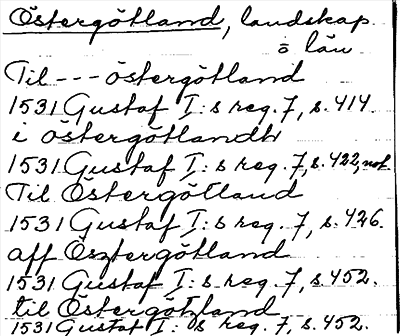 Östergötland, landskap.
o län
Til --- östergötland
1531 Gustaf I:s reg. 7, s. 414.
i östergötlandh
1531 Gustaf I:s reg. 7, s. 422, not
Til Östergötland
1531 Gustaf I:s reg. 7, s. 426.
aff Öszergötland
1531 Gustaf I:s reg. 7, s. 452.
til Östergötland
1531 Gustaf I:s reg. 7, s. 452.